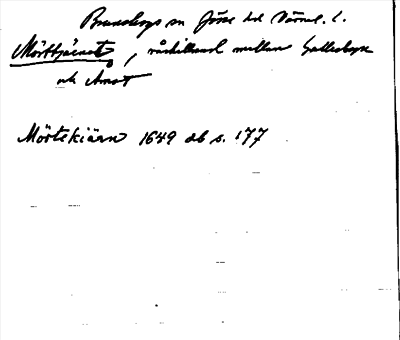 Brunskogs sn Jösse hd Värml. l.
Mörttjärnet, råskillnad mellan Gullesbyn
och Åmot
Mörtekiärn 1649 db s. 177